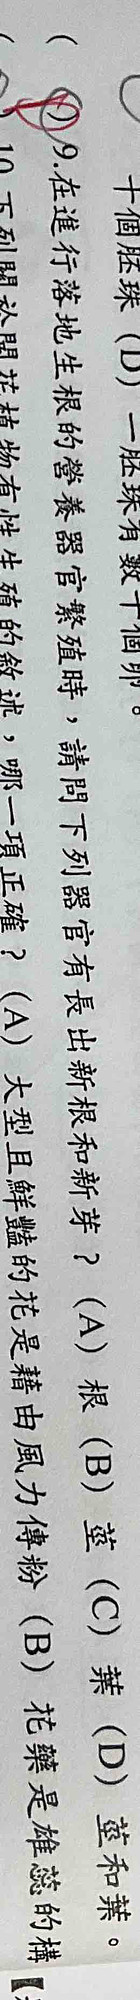 十個胚珠 (D) 一胚珠有數十個卵。
( ) 9.在進行落地生根的營養器官繁殖時，請問下列器官有長出新根和新芽？ (A) 根 (B) 莖 (C) 葉 (D) 莖和葉。
( ) 10.下列關於開花植物有性生殖的敘述，哪一項正確？ (A) 大型且鮮豔的花是藉由風力傳粉 (B) 花藥是雄蕊的構